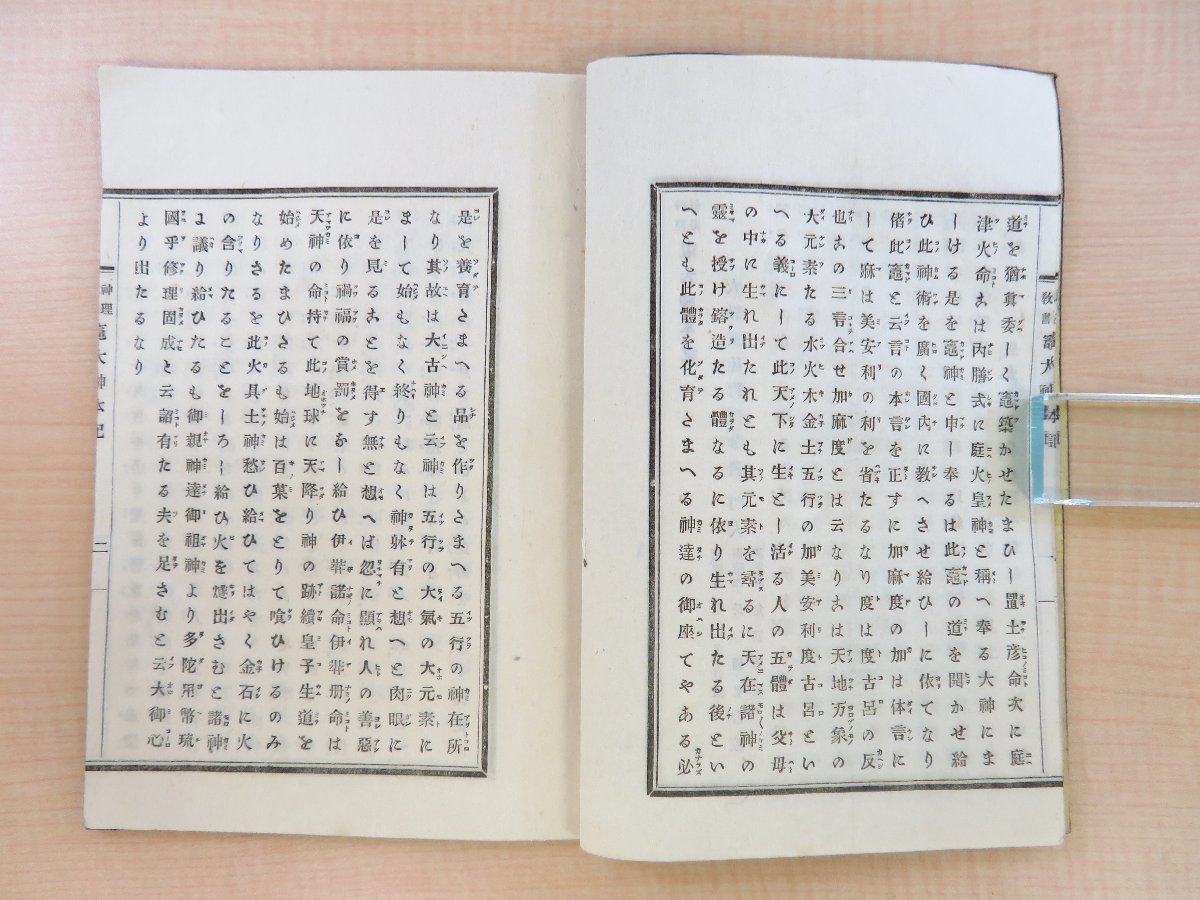 道を猶眞委しく竈築かせたまひし置土彦命次に庭
津火命まは内膳式に庭火皇神と稱へ奉る大神にま
しける是を竈神と申し奉るは此竈の道を開かせ給
ひ此神術を廣く國内に教へさせ給ひしに依てなり
偖此竈と云言の本言を正すに加麻度の加は体言に
して麻は美安利の利を省たるなり度は度古呂の反
也まの三言合せ加麻度とは云なりまは天地万象の
大元素たる水火木金土五行の加美安利度古呂とい
へる義にして此天下に生とし活る人の五體は父母
の中に生れ出たれとも其元素を尋るに天在諸神の
靈を授け鎔造たる體なるに依り生れ出たる後とい
へとも此體を化育さまへる神達の御座てやある必
教書 竈大神本記
是を養育さまへる品を作りさまへる五行の神在所
なり其故は大古神と云神は五行の大氣の大元素に
まして始もなく終りもなく神躰有と想へと肉眼に
是を見るまとを得す無と想へば忽に顯れ人の善惡
に依り禍福の賞罰をなし給ひ伊弉諾命伊弉册命は
天神の命持て此地球に天降り神の跡續皇子生道を
始めたまひさるも始は百菓をとりて喰ひけるのみ
なりさるを此火具土神愁ひ給ひてはやく金石に火
の含りたることをしろし給ひ火を燧出さむと諸神
に議り給ひたるも御親神達御祖神より多陀用幣琉
國乎修理固成と云詔有たる夫を足さむと云大御心
より出たるなり
神理 竈大神本記
二